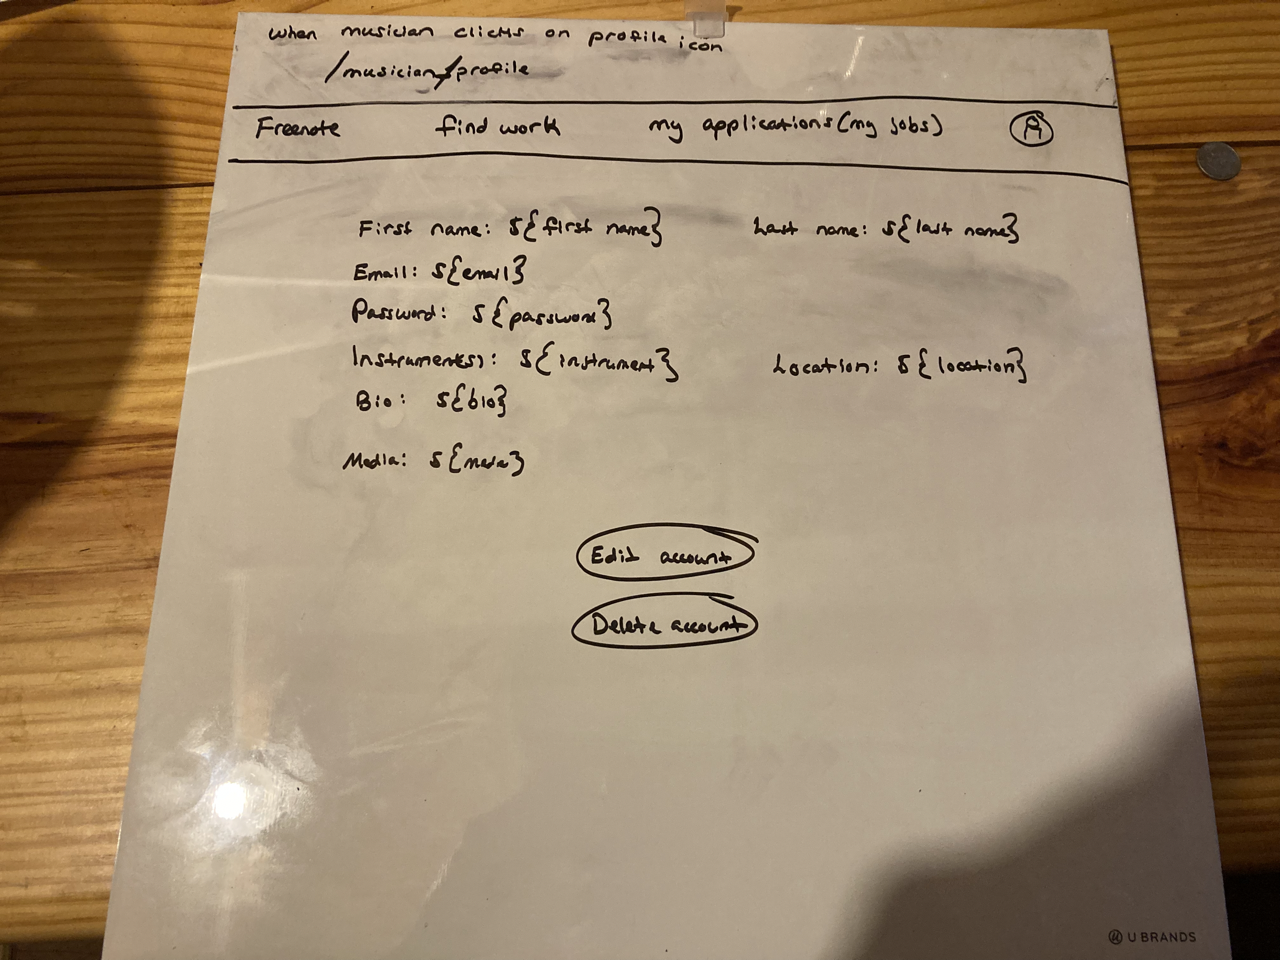 when musician clicks on profile icon
/musician/profile
Freenote find work my applications (my jobs)
First name: ${first name} Last name: ${last name}
Email: ${email}
Password: ${password}
Instrument(s): ${instrument} Location: ${location}
Bio: ${bio}
Media: ${media}
Edit account
Delete account
U BRANDS